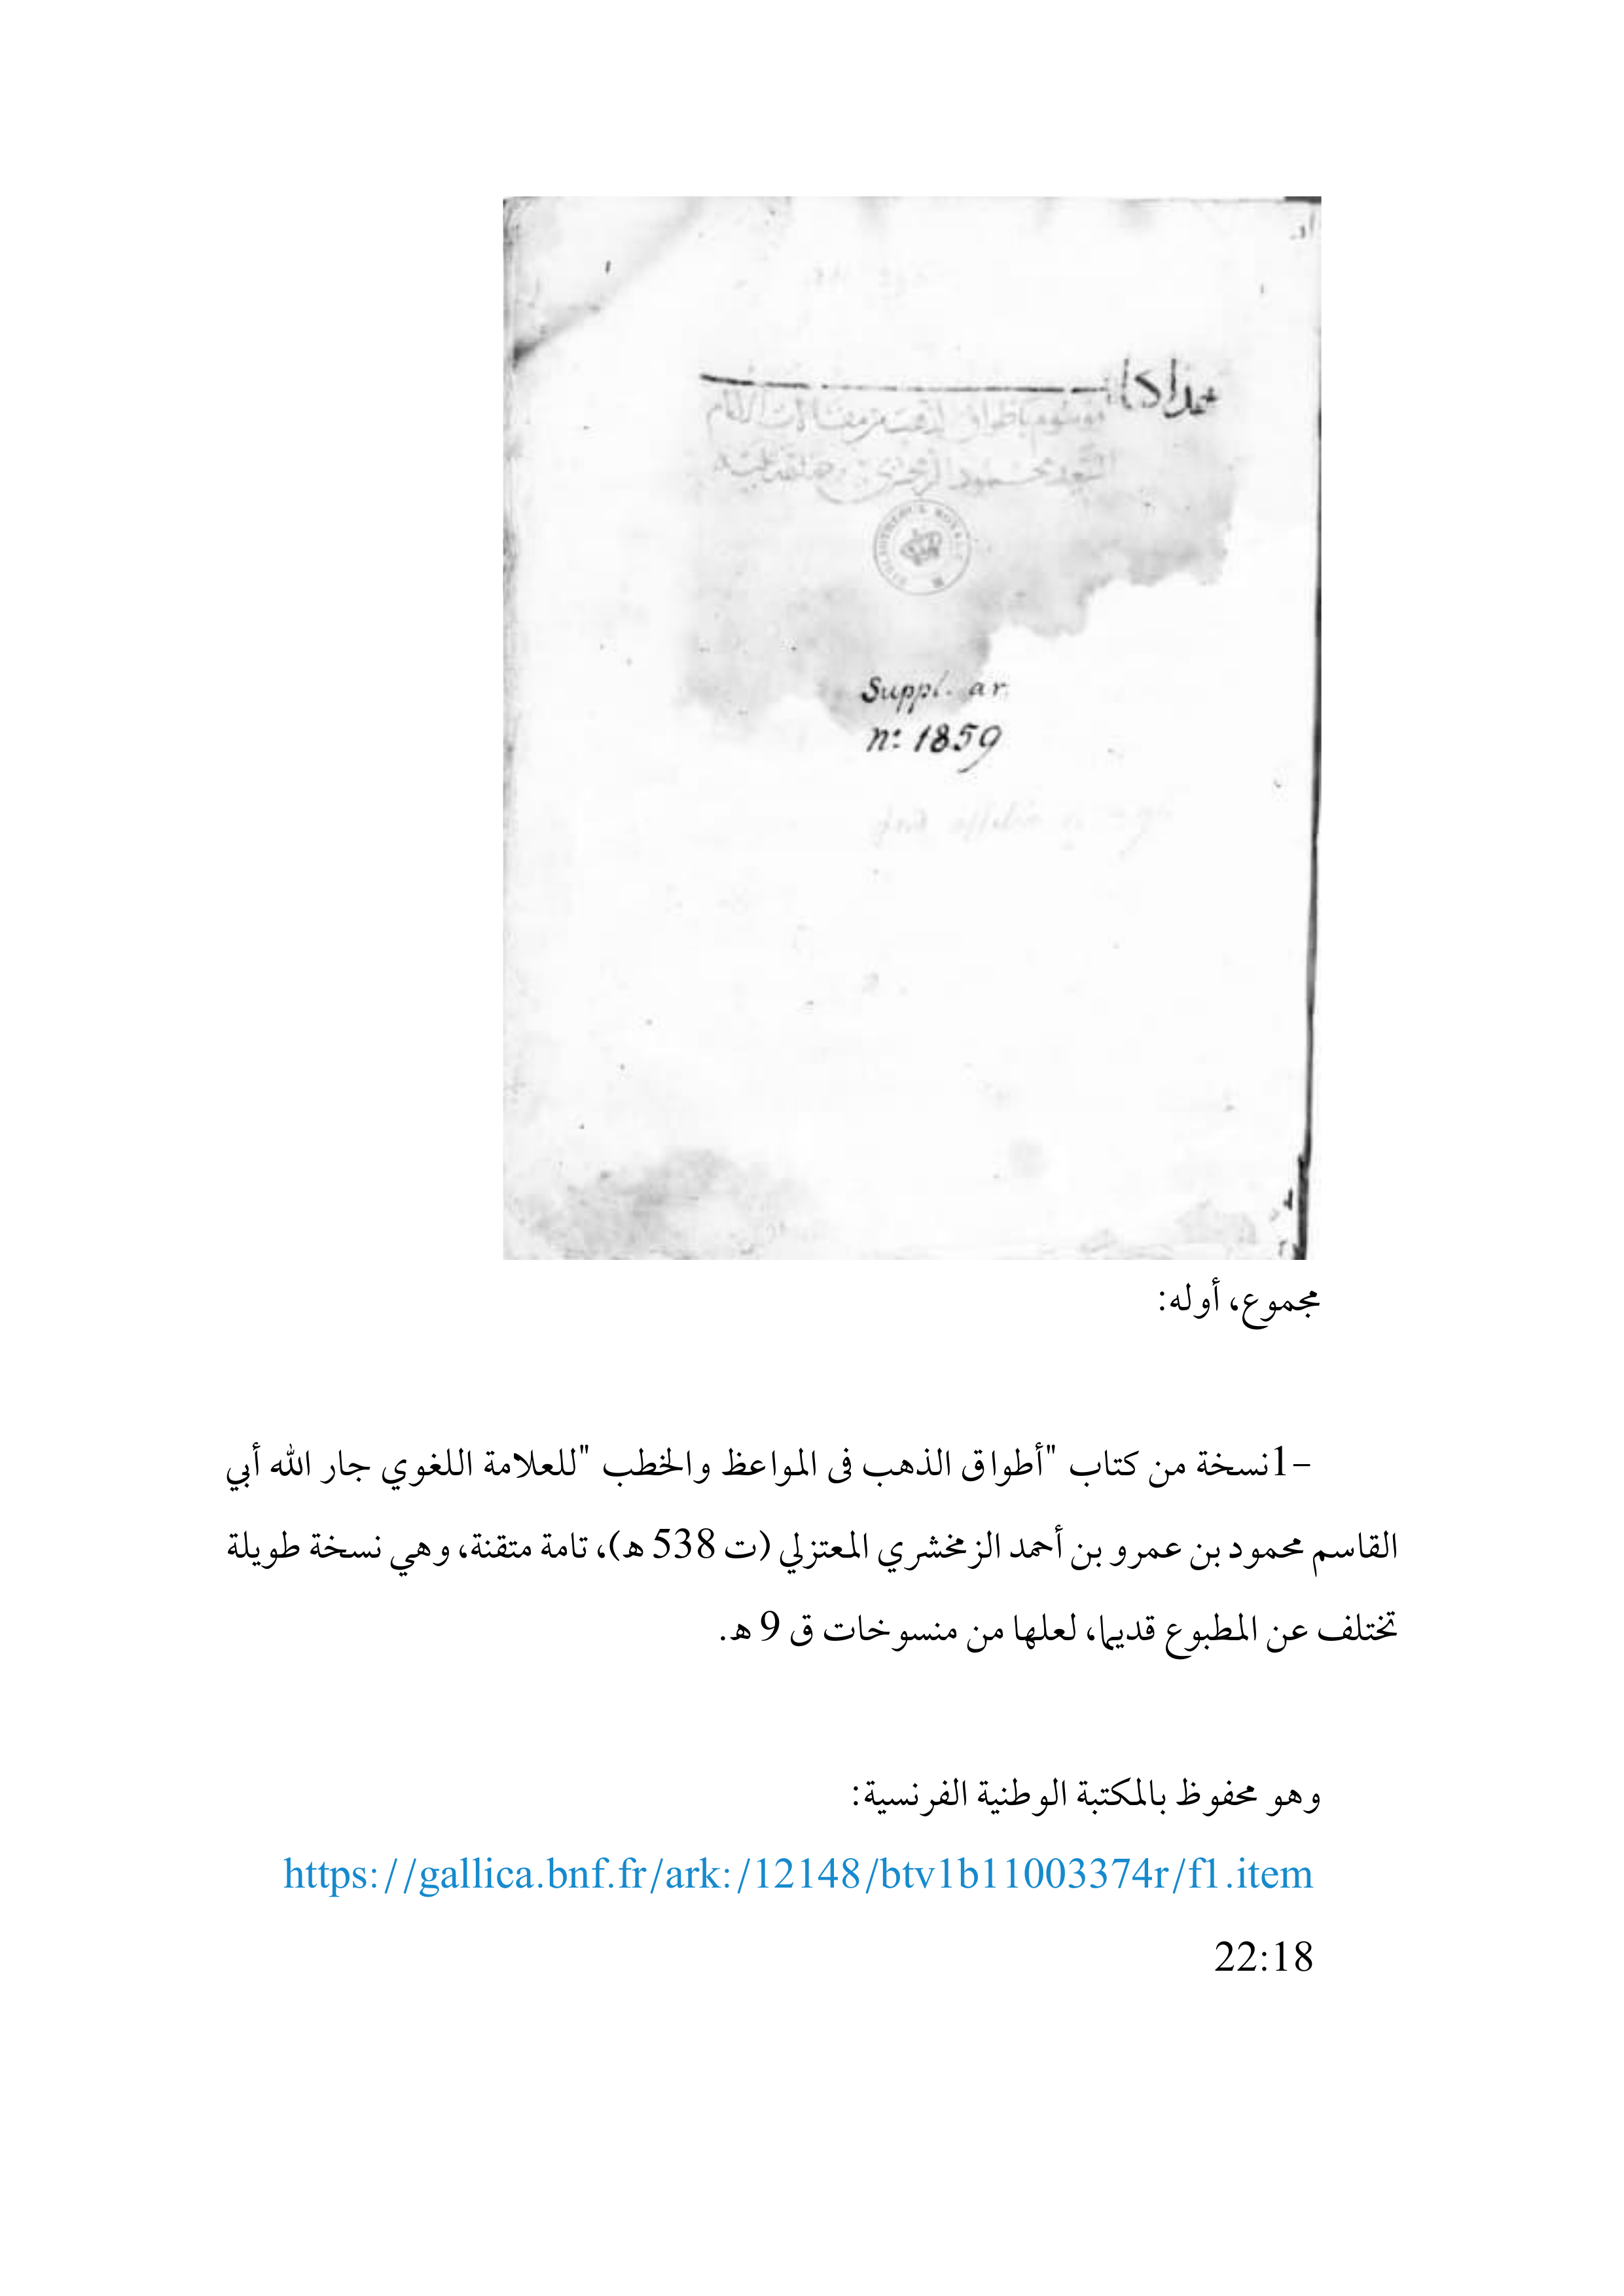 موسوم باطواق الذهب من مقالات الامام
محمود الزمخشري رحمة الله عليه
Suppl. ar.
n: 1859
مجموع، أوله:
-1نسخة من كتاب "أطواق الذهب فى المواعظ والخطب "للعلامة اللغوي جار الله أبي
القاسم محمود بن عمرو بن أحمد الزمخشري المعتزلي (ت 538 ه)، تامة متقنة، وهي نسخة طويلة
تختلف عن المطبوع قديما، لعلها من منسوخات ق 9 ه.
وهو محفوظ بالمكتبة الوطنية الفرنسية:
https://gallica.bnf.fr/ark:/12148/btv1b11003374r/f1.item
22:18